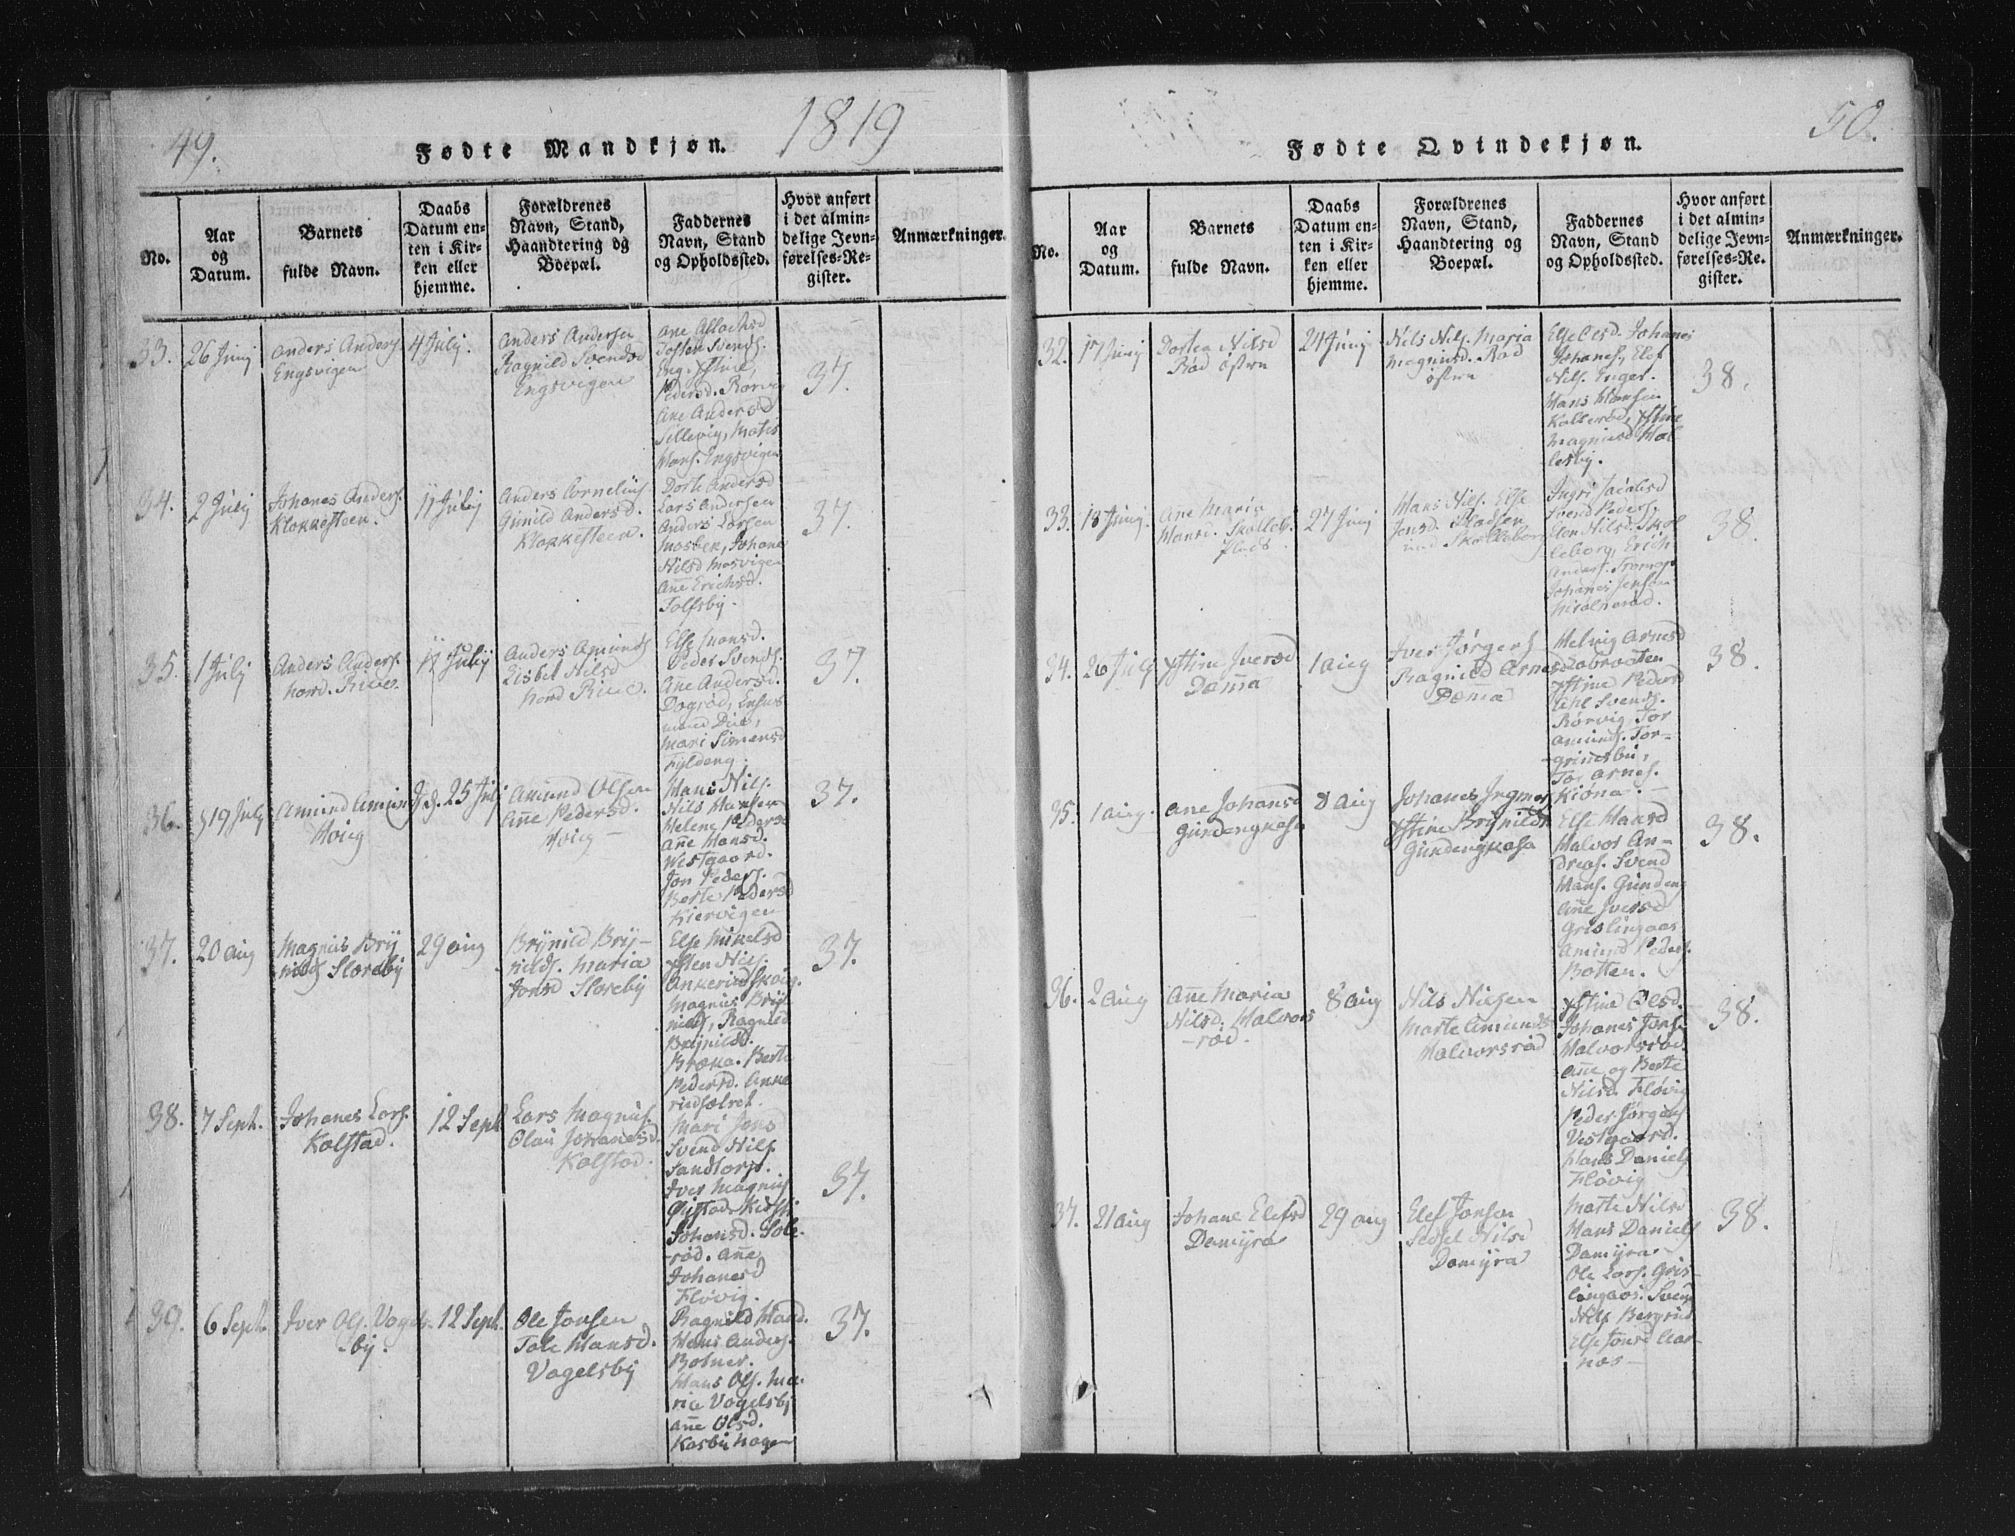 49.
Fødte Mandkjøn.
1819
No.
Aar
og
Datum.
Barnets
fulde Navn.
Daabs
Datum en-
ten i Kir-
ken eller
hjemme.
Forældrenes
Navn, Stand,
Haandtering og
Boepæl.
Faddernes
Navn, Stand
og Opholdssted.
Hvor anført
i det almin-
delige Jevn-
førelses-Re-
gister.
Anmærkninger.
33.
26 Junj
Anders Anders.
Engsvigen
4 Julj.
Anders Andersen
Ragnild Svendsd
Engsvigen
Svends.
Pedersd. Rørvig
Ane Andersd
Sillevig, Mates
Hans. Engsvigen
37.
34.
2 Julj
Johanes Anders.
Klokkesteen.
11 Julij
Anders Cornelius
Gunild Andersd.
Klokkesteen.
Dorte Andersd
Lars Andersen
Anders Larsen
Mosben, Johane
Nilsd Mosvigen
Ane Erichsd.
Tolfsby.
37.
35.
1 Julj
Anders Anders.
nord. Riive.
11 Julij
Anders Amunds
Lisbet Nilsd
nord Riive.
Else Hansd.
Peder Svends.
Ane Andersd.
Dogrød,
Mari Simensd
Fyldeng.
37.
36.
19 July
Amund Amund
Høieg
25 Julj
Amund Olsen
Ane Pedersd.
Høieg
Hans Nils.
Nils Hansen
Helene Pedersd
Ane Hansd.
Westgaard.
Jon Peders.
Berte Pedersd
Kiervigen
37.
37.
20 Aug
Magnus Bry
nilds Sloreby
29 Aug
Brynild Bry-
nilds. Maria
Jonsd Sloreby
Else Mikelsd
Nils.
Magnus Bry
nilds, Ragnild
Brynildsd.
Bræka. Berte
Pedersd. Anke
37.
38.
7 Sept.
Johanes Lars.
Kolstad.
12 Sept
Lars Magnus.
Olau Johanesd.
Kolstad.
Mari Jons
Svend Nils
Sandtorp.
Iver Magnus
Johansd. Sole-
rød. Ane
Johanesd
Fløvig.
37.
39.
6 Sept.
Iver Ols. Vogels-
by.
12 Sept.
Ole Jonsen
Tole Hansd.
Vogelsby
Ragnild Hansd.
Hans Anders.
Botner.
Hans Ols. Ma-
rie Vogelsby
Ane Olsd.
Kasbu hagen
37.
50.
Fødte Qvindekjøn.
No.
Aar
og
Datum.
Barnets
fulde Navn.
Daabs
Datum en-
ten i Kir-
ken eller
hjemme.
Forældrenes
Navn, Stand,
Haandtering og
Boepæl.
Faddernes
Navn, Stand
og Opholdssted.
Hvor anført
i det almin-
delige Jevn-
førelses-Re-
gister.
Anmærkninger.
32.
17 Junj
Dortea Nilsd
Rød østren
24 Junij
Nils Nils. Maria
Magnusd. Rød
østren
Else Olsd. Johanes
Johanes, Elef
Nils. Enger.
Hans Hansen
Kollerød, Xstine
Magnusd Hal
lesby.
38.
33.
18 Junj
Ane Maria
Hansd. Skolleb.
Plads.
27 Junj
Hans Nils. Else
Jonsd. Pladsen
und Skolleborg
Ingri Jacobsd
Svend Peders.
Elen Nilsd. Skol
leborg, Erich
Anders.
Johanes Jensen
38.
34.
26 Julj
Xstine Iversd
Dæma
1 Aug
Iver Jørgens
Ragnild Arnesd
Dæma
Helvig Arnesd
Labraaten.
Xstine Pedersd
Svends.
Rørvig, Tor
Amunds. Tor-
grimsbu,
Tor Arnes.
Kiøna.
38.
35.
1 Aug.
Ane Johansd
Gundengkasa
8 Aug
Johanes Ingmars
Xstine Brynilds
Gundengkasa
Else Hansd
Halvor An-
dreas. Svend
Hans. Gundeng
Ane Iversd
Grislingaas
Amund Peders.
Botten.
38.
36.
2 Aug
Ane Maria
Nilsd. Halvors
-rød.
8 Aug
Nils Nielsen
Marte Amunds
Halvorsrød
Xstine Olsd.
Johanes Jons.
Halvorsrød.
Ane og Berte
Nilsd. Fløvig
Peder Jørgens
Vestgaard.
Hans Daniels
Fløvig
38.
37.
21 Aug
Johane Elefsd
Damyra
29 Aug
Elef Jonsen
Sidsel Nilsd
Damyra
Marte Nilsd
Hans Daniels
Damyra
Ole Lars. Gris-
lingaas. Svend
Nils Bergerud
Else Jonsd Aar-
næs
38.